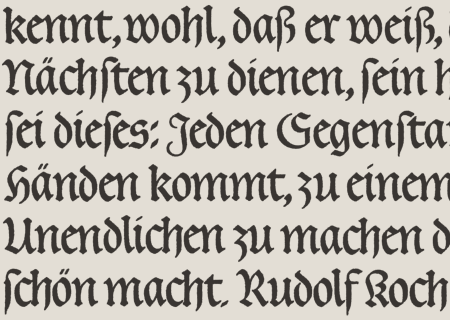 kennt, wohl, daß er weiß,
Nächſten zu dienen, ſein
ſei dieſes: Jeden
Händen kommt, zu einem
Unendlichen zu machen
ſchön macht. Rudolf Koch